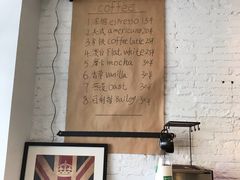 coffee
1 浓缩 espresso 15¥
2 美式 americano 20¥
3 拿铁 coffee latte 25¥
4 澳白 flat white 25¥
5 摩卡 mocha 30¥
6 香草 vanilla 30¥
7 燕麦 oast 30¥
8 百利甜 Bailey 30¥